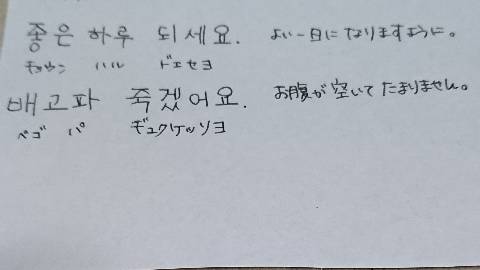 좋은 하루 되세요. よい一日になりますように。
チョウン ハル ドェセヨ
배고파 죽겠어요. お腹が空いてたまりません。
ペゴ パ ヂュクケッソヨ